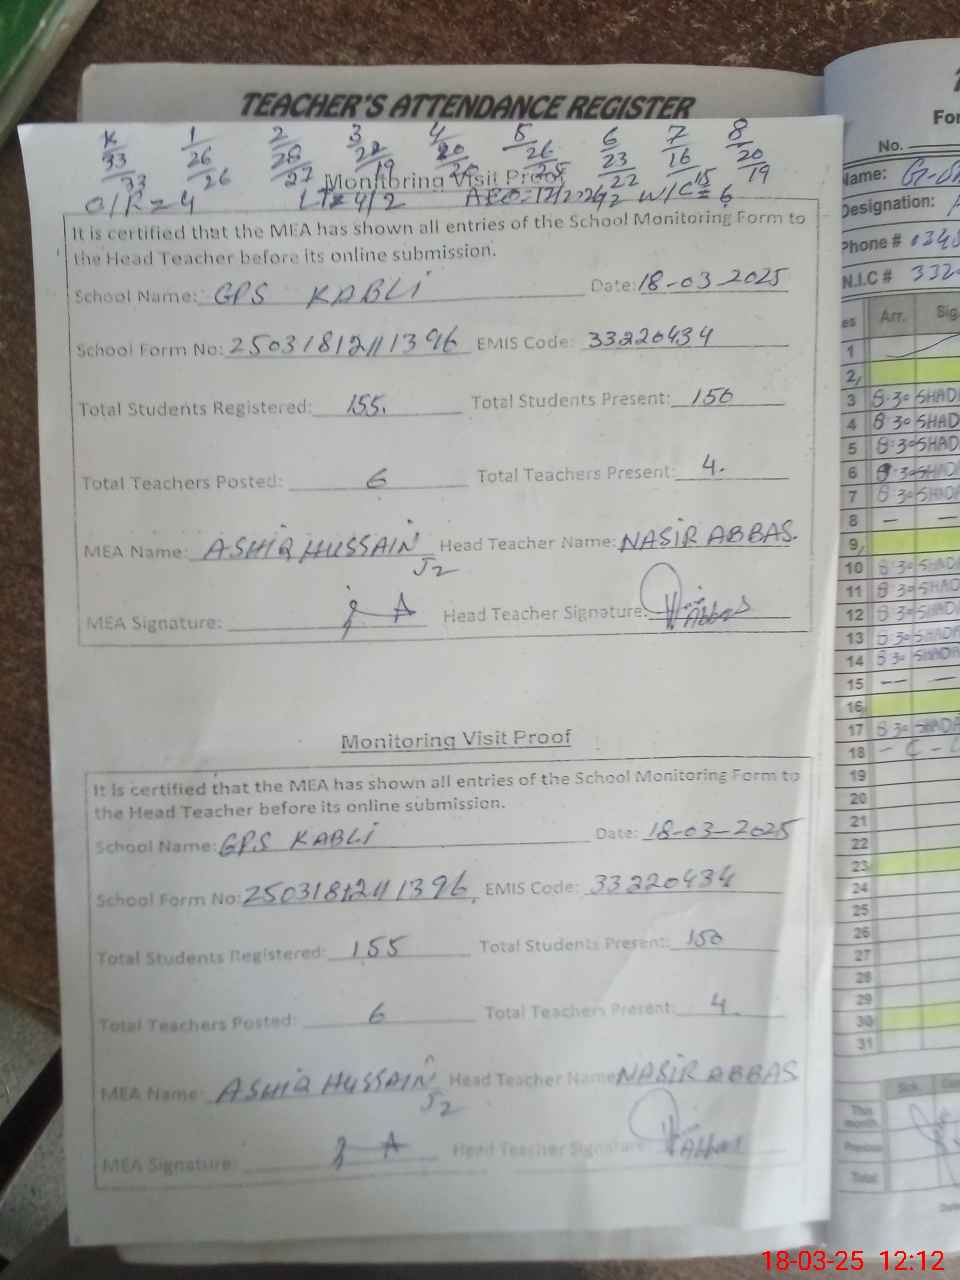 TEACHER'S ATTENDANCE REGISTER
K 1 2 3 4 5 6 7 8
33 26 28 22 20 26 23 16 20
33 26 27 19 20 25 22 15 19
Monitoring Visit Proof
O/R = 4 W/C = 6
It is certified that the MEA has shown all entries of the School Monitoring Form to
the Head Teacher before its online submission.
School Name: GPS KABLI Date: 18-03-2025
School Form No: 25031812111396 EMIS Code: 33220434
Total Students Registered: 155. Total Students Present: 150
Total Teachers Posted: 6 Total Teachers Present: 4.
MEA Name: ASHIQ HUSSAIN Head Teacher Name: NASIR ABBAS.
J2
MEA Signature: Head Teacher Signature: Abbas
Monitoring Visit Proof
It is certified that the MEA has shown all entries of the School Monitoring Form to
the Head Teacher before its online submission.
School Name: GPS KABLI Date: 18-03-2025
School Form No: 25031812111396, EMIS Code: 33220434
Total Students Registered: 155 Total Students Present: 150
Total Teachers Posted: 6 Total Teachers Present: 4.
MEA Name: ASHIQ HUSSAIN Head Teacher Name NASIR ABBAS
J2
MEA Signature: Head Teacher Signature: Abbas
No.
Name:
Designation:
Phone # 0345
N.I.C # 332
es Arr. Sig.
1
2
3 8:30 SHAD
4 8 30 SHAD
5 8:30 SHAD
6 8:30 SHAD
7 8:30 SHAD
8 — —
9
10 8 30 SHAD
11 8 30 SHAD
12 8 30 SHAD
13 8 30 SHADA
14 8 30 SHADA
15 -- —
16
17 8 30 SHADA
18 - C - L
19
20
21
22
23
24
25
26
27
28
29
30
31
Sick.
This
month
Previous
Total
18-03-25 12:12